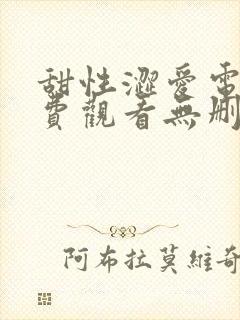 甜性澀愛電
費觀看無刪
阿布拉莫維奇